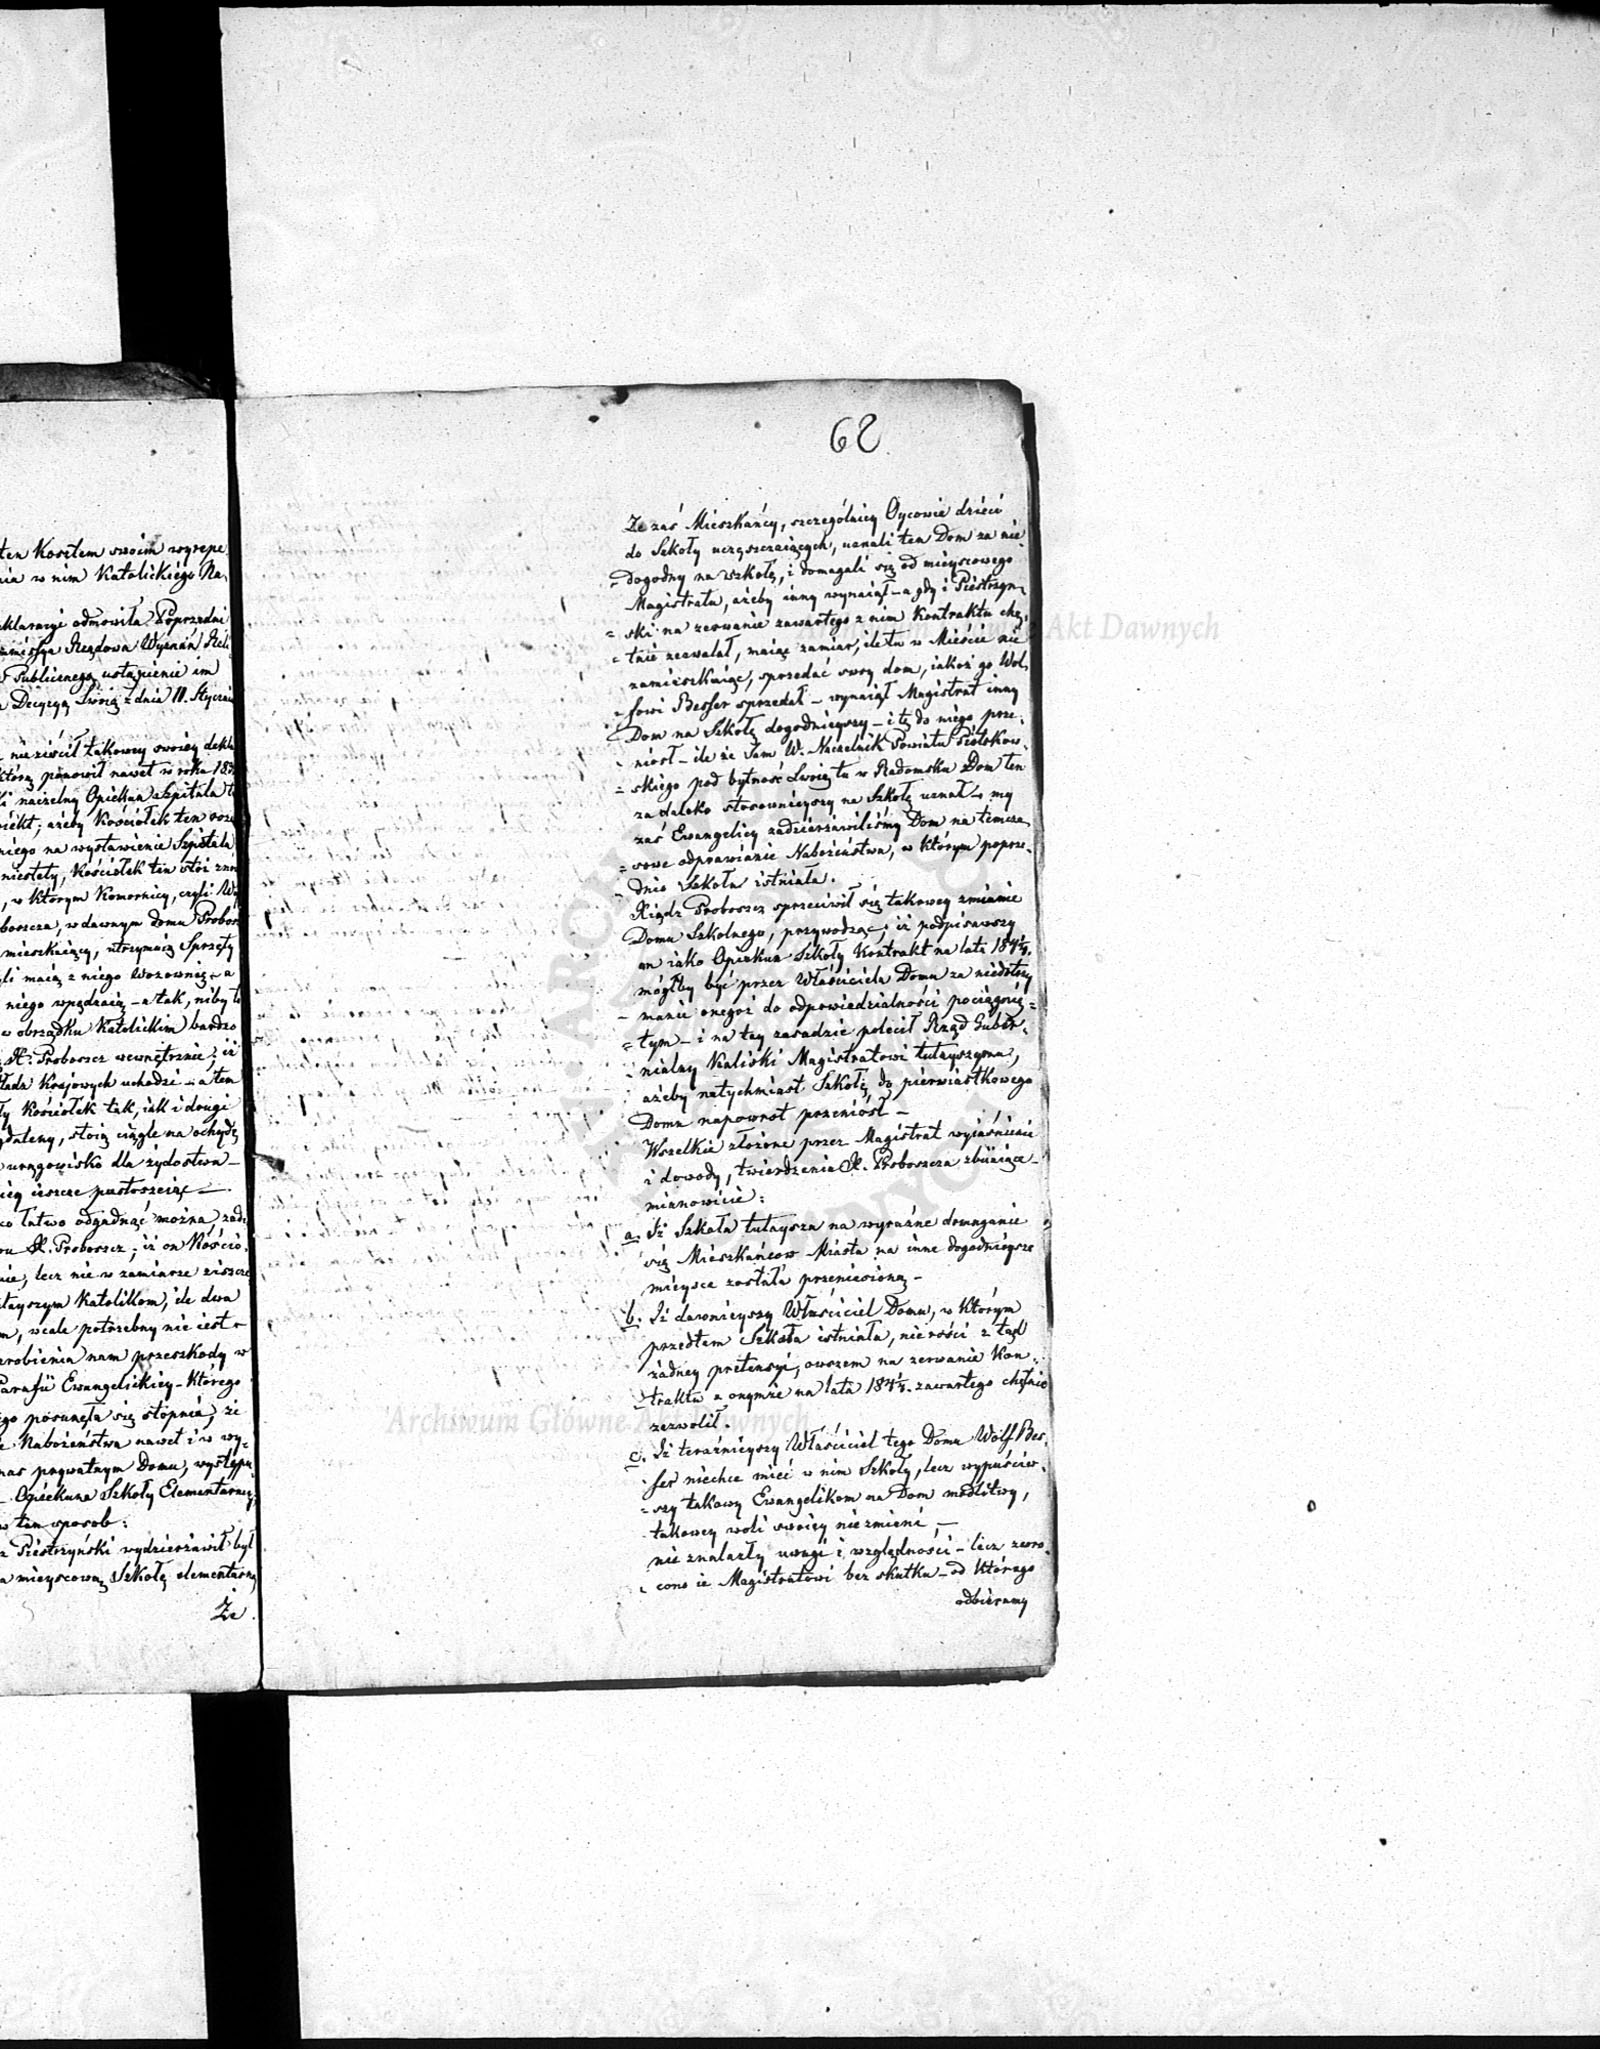 ten Kosztem swoim wyrepe
nia w nim Katolickiego Na
klaracyi odmówiła Poprzedni
Rządowa Wyznań Reli
Publicznego ustąpienie im
Decyzyą Swoią z dnia 11. Stycznia
nie ziścił takowey swoiey dekla
którą ponowił nawet w roku 183
naczelny Opiekun Szpitala
ażeby Kościołek ten roze
niego na wystawienie Szpitala
niestety, Kościołek ten stoi
, w którym Komornicy, czyli
boszcza, w dawnym domu Probos
mieszkaiący, utrzymuią Sprzęty
li maią z niego Wozownią, a
niego wpędzaią – a tak, niby to
w obrządku Katolickim bardzo
X. Proboszcz wewnętrznie; iż
ładz Krajowych uchodzi – a ten
ły Kościołek tak, iak i drugi
gdaleny, stoią ciągle na ochydę
urągowisko dla żydostwa –
ieszcze pustoszeiąc –
co łatwo odgadnąć można, zada
X. Proboszcz; iż on Kościo
nie, lecz nie w zamiarze
tuteyszym Katolikom, ile dwa
m, wcale potrzebny nie iest –
zrobienia nam przeszkody w
Parafii Ewangelickiey – którego
go posunęła się stopnia, że
Nabożeństwa nawet i w wy
nas prywatnym Domu, występu
Opiekuna Szkoły Elementarney
w ten sposób:
Piestrzyński wydzierżawił był
a mieyscową Szkołę elementarną
Że
62
Że zaś Mieszkańcy, szczególniey Oycowie dzieci
do Szkoły uczęszczaiących, uznali ten Dom za nie
= dogodny na szkołę, i domagali się od mieyscowego
Magistratu, ażeby inny wynaiął – a gdy i Piestrzyń
= ski na zerwanie zawartego z nim Kontraktu chę,
= tnie zezwalał, maiąc zamiar, ile tu w Mieście nie
zamieszkuiąc, sprzedać swoy dom, iakoż go Wol,
= fowi Besser sprzedał – wynaiął Magistrat inny
Dom na Szkołę dogodnieyszy – i tę do niego prze,
niosł – ile że Sam W. Naczelnik Powiatu Piotrkow,
= skiego pod bytność Swoią tu w Radomsku Dom ten
za daleko stosownieyszy na Szkołę uznał – my
zaś Ewangelicy zadzierżawiliśmy Dom na tymcza,
= sowe odprawianie Nabożeństwa, w którym poprze,
- dnio Szkoła istniała.
Xiądz Proboszcz sprzeciwił się takowey zmianie
Domu Szkolnego, przywodząc; iż podpisawszy
on iako Opiekun Szkoły Kontrakt na lata 184¼.
mógłby być przez Właściciela Domu za niedotrzy
- manie onegoż do odpowiedzialności pociągnię=
= tym – i na tey zasadzie polecił Rząd Guber,
nialny Kaliski Magistratowi tuteyszemu,
ażeby natychmiast Szkołę do pierwiastkowego
Domu napowrót przeniósł –
Wszelkie złożone przez Magistrat wyiaśnienie
i dowody, twierdzenia X. Proboszcza zbiiaiące –
mianowicie:
a. Iż Szkoła tuteysza na wyraźne domaganie
się Mieszkańców Miasta na inne dogodnieysze
mieysce została przeniesioną –
b. Iż dawnieyszy Właściciel Domu, w którym
przedtem Szkoła istniała, nie rości z tąd
żadney pretensyi, owszem na zerwanie Kon,
traktu o onymże na lata 184¼. zawartego chętnie
zezwolił.
c. Iż teraźnieyszy Właściciel tego Domu Wolf Bes,
ser niechce mieć w nim Szkoły, lecz wypuściw,
= szy takowy Ewangelikom na Dom modlitwy,
takowey woli swoiey niezmieni –
nie znalazły uwagi i względności – lecz zwró,
cono ie Magistratowi bez skutku – od którego
odbieramy
Archiwum Główne Akt Dawnych